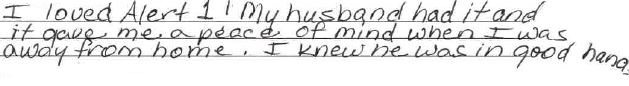 I loved Alert 1! My husband had it and
it gave me a peace of mind when I was
away from home. I knew he was in good hang